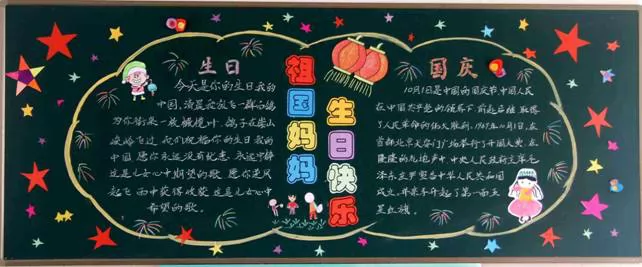 生日
今天是你的生日我的
中国,清晨我放飞一群白鸽
为你衔来一枚橄榄叶,鸽子在崇山
峻岭飞过 我们祝福你的生日我的
中国 愿你永远没有忧患 永远宁静
这是儿女心中期望的歌 愿你逆风
起飞 雨中获得收获 这是儿女心中
希望的歌。
祖国妈妈
生日快乐
国庆
10月1是中国的国庆节中国人民
在中国共产党的领导下,前赴后继 取得
了人民革命的伟大胜利,1949年10月1日,在
首都北京天安门广场举行了开国大典,在
隆隆的礼炮声中 中央人民政府主席毛
泽东庄严宣告中华人民共和国
成立,并亲手升起了第一面五
星红旗。